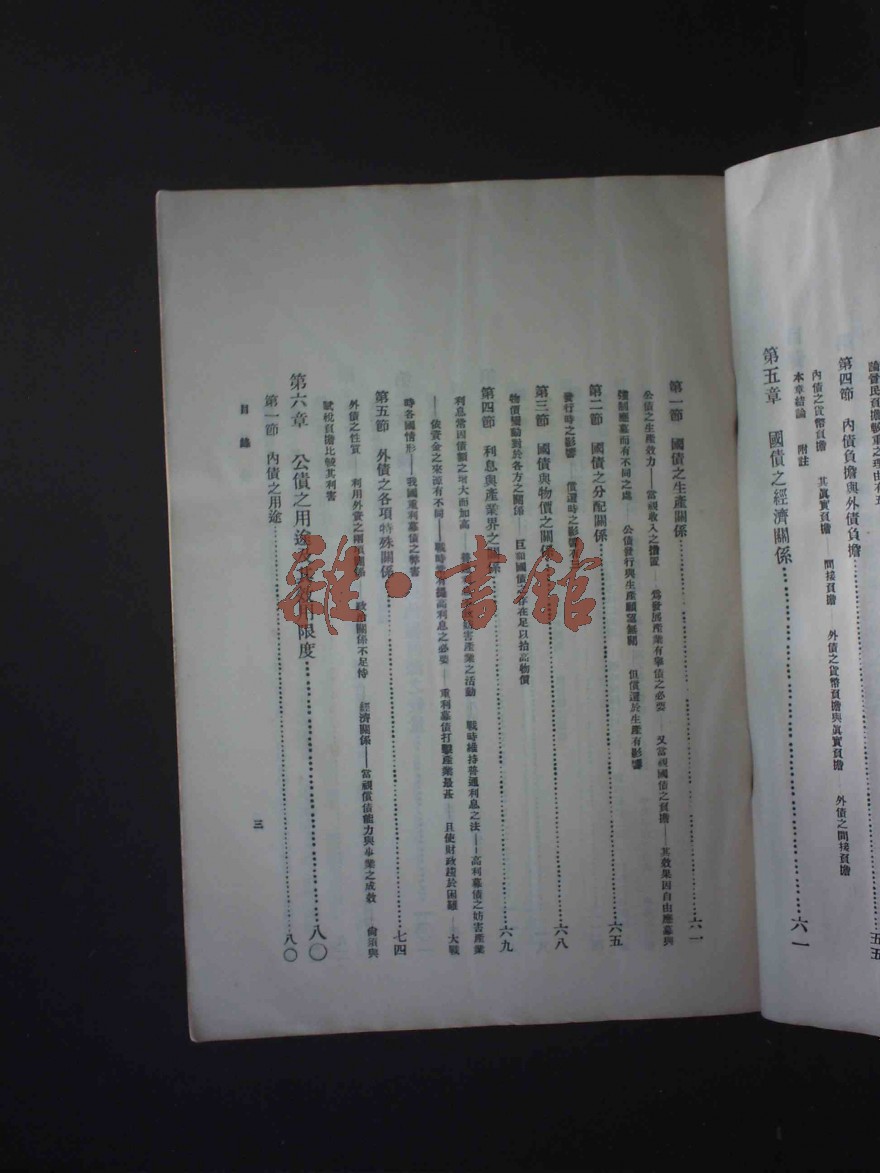 論晉民負擔較重之理由有五
五五
第四節 內債負擔與外債負擔
內債之貨幣負擔 其眞實負擔 間接負擔 外債之貨幣負擔與眞實負擔 外債之間接負擔
本章結論 附註
第五章 國債之經濟關係……六一
第一節 國債之生產關係……六一
公債之生產效力——當視收入之措置 爲發展產業有舉債之必要 又當視國債之負擔——其效果因自由應募與
強制應募而有不同之處 公債發行與生產 但償還於生產有影響
第二節 國債之分配關係……六五
發行時之影響 償還時之影響
第三節 國債與物價之關係……六八
物價變動對於各方之關係 巨額國債之存在足以抬高物價
第四節 利息與產業界之關係……六九
利息常因債額之增大而加高 妨害產業之活動 戰時維持普通利息之法——高利募債之妨害產業
——依資金之來源有不同——戰時 提高利息之必要 重利募債打擊產業最甚 且使財政趨於困難 大戰
時各國情形——我國重利募債之弊害
第五節 外債之各項特殊關係……七四
外債之性質 利用外資之兩 關係不足恃 經濟關係——當視償債能力與事業之成效 倘須與
賦稅負擔比較其利害
第六章 公債之用途及其 用限度……八〇
第一節 內債之用途……八〇
目錄
三
雜·書館